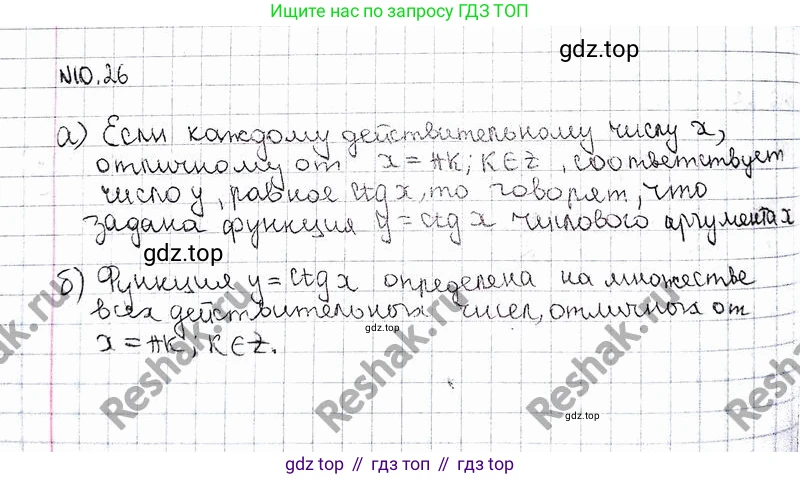 Ищите нас по запросу ГДЗ ТОП
gdz.top
N10.26
а) Если каждому действительному числу x,
отличному от x = πK; K∈Z, соответствует
число y, равное ctg x, то говорят, что
задана функция y = ctg x числового аргумента x
gdz.top
б) Функция y = ctg x определена на множестве
всех действительных чисел, отличных от
gdz.top
x = πK; K∈Z.
Reshak.ru
Reshak.ru
Reshak.ru
Reshak.ru
Reshak.ru
gdz.top
gdz top // гдз топ // gdz.top // гдз.топ